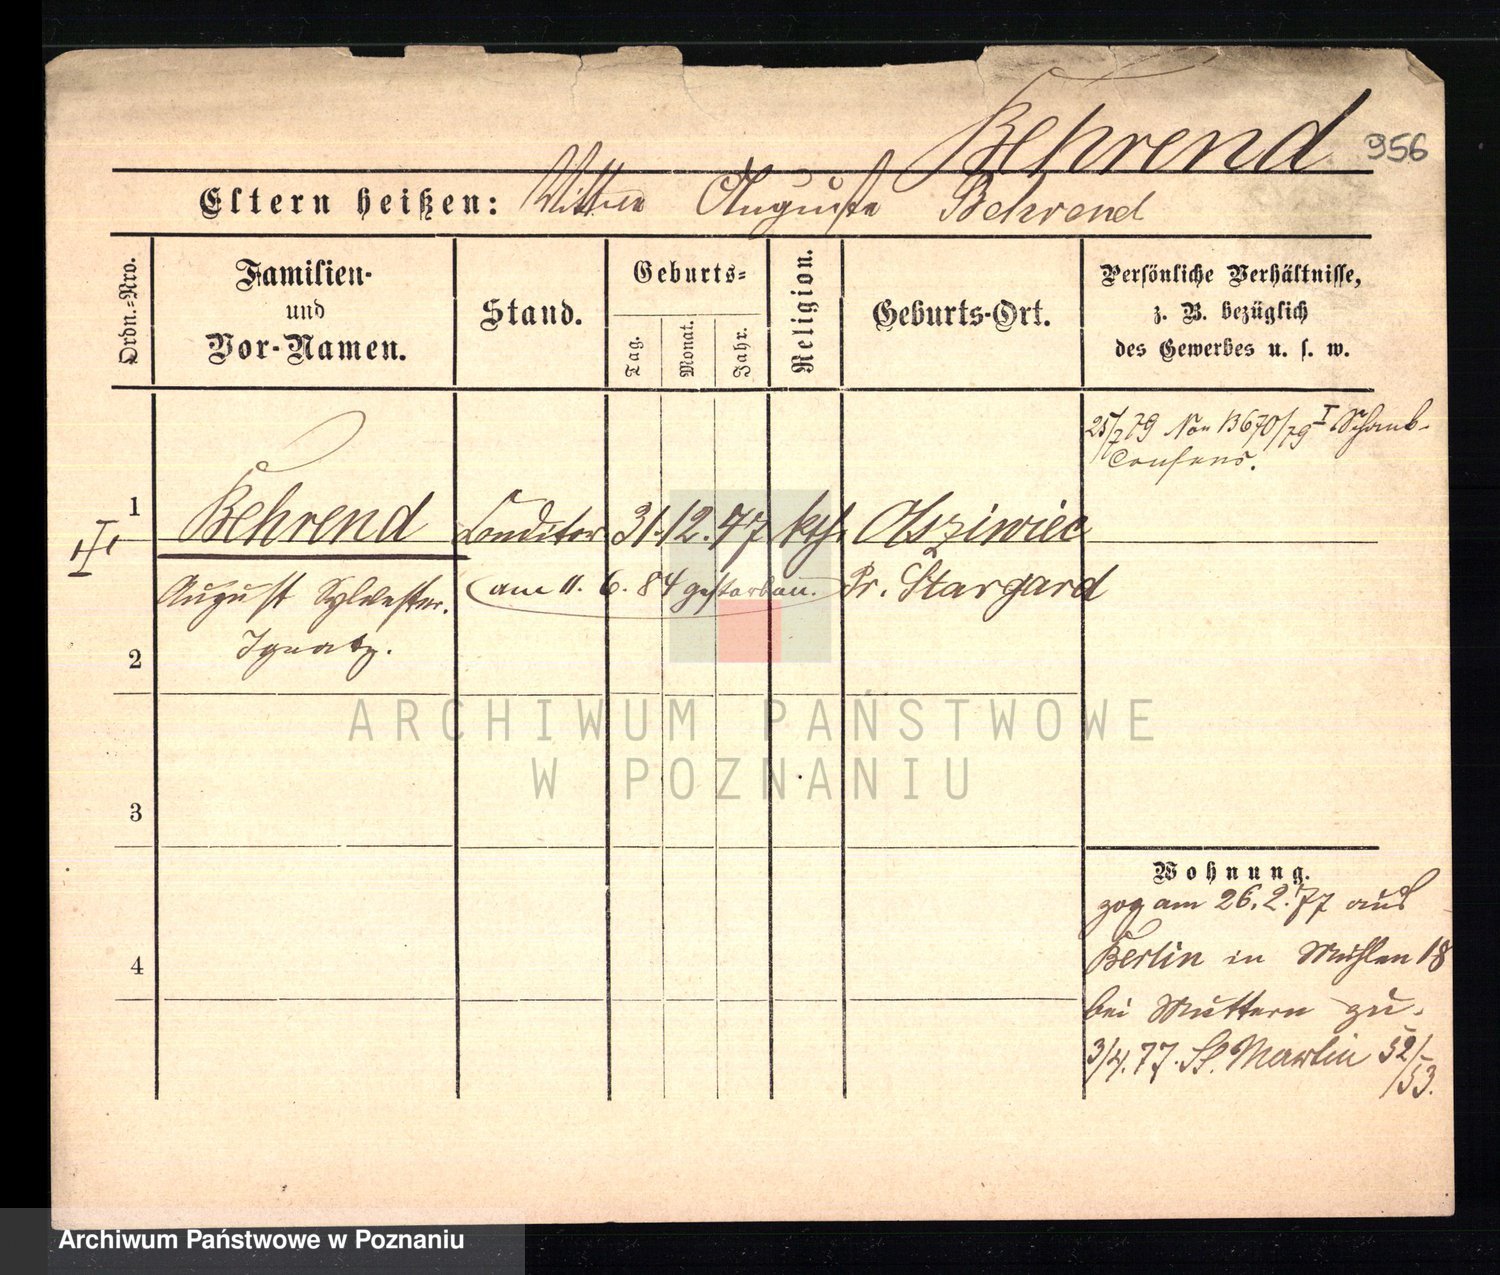 Behrend 956
Eltern heißen: Wittwe Auguste Behrend
Ordn.-Nro.
Familien-
und
Vor-Namen.
Stand.
Geburts-
Tag.
Monat.
Jahr.
Religion.
Geburts-Ort.
Persönliche Verhältnisse,
z. B. bezüglich
des Gewerbes u. s. w.
25/2 79 13670/79 I Schank-
Consens.
1 Behrend Conditor 31. 12. 47 kth. Osziwiec
August Sylvester (am 11. 6. 84 gestorben.) Pr. Stargard
2 Ignatz.
ARCHIWUM PAŃSTWOWE
W POZNANIU
3
Wohnung.
zog am 26. 2. 77 aus
4 Berlin in Mühlen 18
bei Muttern zu.
3/4. 77. St. Martin 52/
/53.
Archiwum Państwowe w Poznaniu